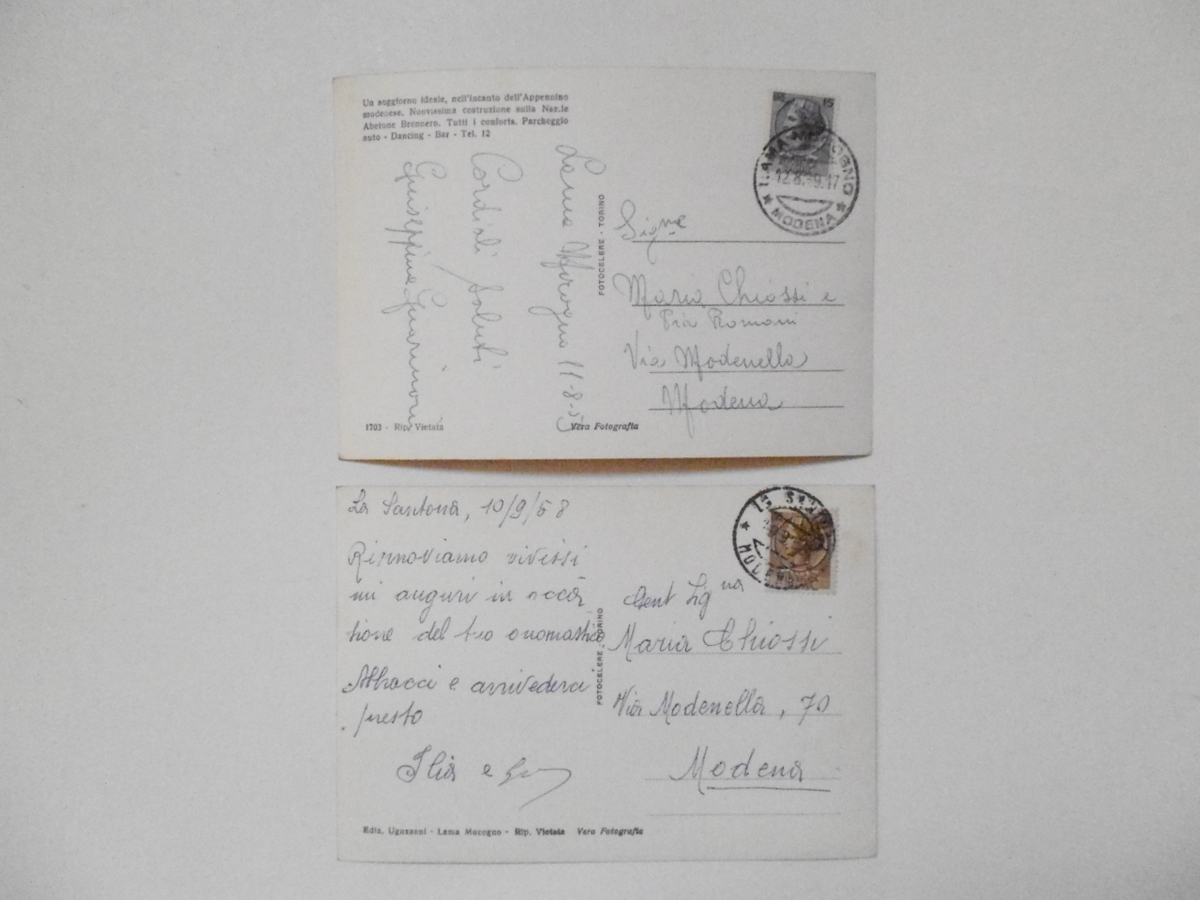 Un soggiorno ideale, nell'incanto dell'Appennino
modenese. Nuovissima costruzione sulla Naz.le
Abetone Brennero. Tutti i conforts. Parcheggio
auto - Dancing - Bar - Tel. 12
Lama Mocogno 11-8-59
Cordiali saluti
Giuseppina Guarinoni
FOTOCELERE - TORINO
15
LAMA MOCOGNO
12.8.59.17
MODENA
Sig.ne
Maria Chiossi e
Pia Romani
Via Modenella
Modena
1703 - Rip. Vietata
Vera Fotografia
La Santona, 10/9/58
Rinnoviamo vivissi
mi auguri in occa
sione del tuo onomastico
Abbracci e arrivederci
presto
Ilia e
FOTOCELERE - TORINO
MODENA
Gent Sig na
Maria Chiossi
Via Modenella, 70
Modena
Ediz. Ugazzoni - Lama Mocogno - Rip. Vietata Vera Fotografia